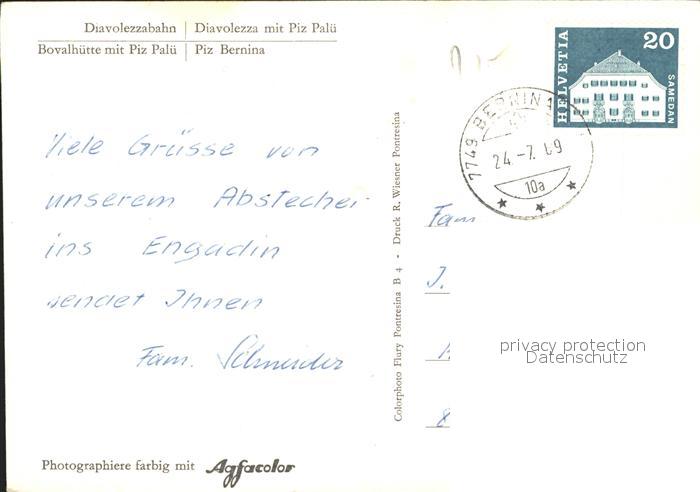 Diavolezzabahn | Diavolezza mit Piz Palü
Bovalhütte mit Piz Palü | Piz Bernina
HELVETIA
20
SAMEDAN
7749 BERNINA
24.-7. 69
10a
Viele Grüsse von
unserem Abstecher
ins Engadin
sendet Ihnen
Fam. Schneider
Colorphoto Flury Pontresina B 4 - Druck R. Wiesner Pontresina
Fam
J.
8
privacy protection
Datenschutz
Photographiere farbig mit Agfacolor